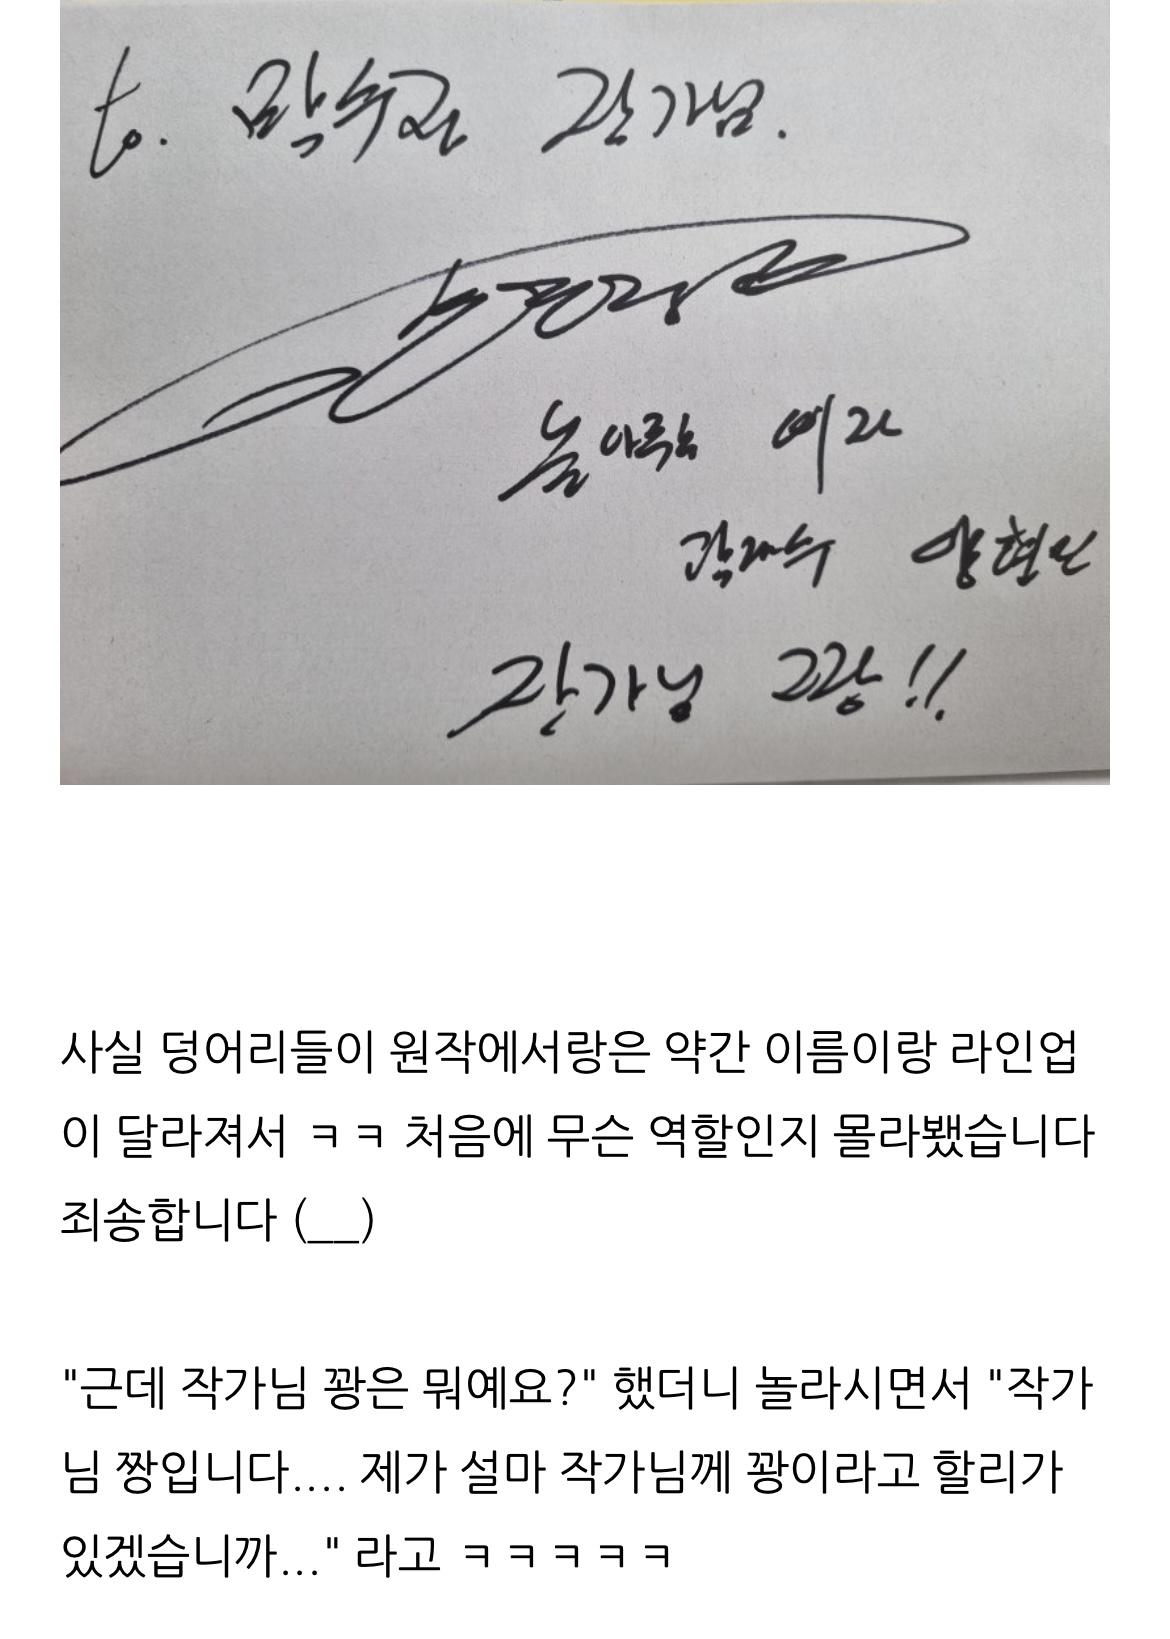 to. 박수정 작가님.
놀아주는 여자
곽재수 양현민
작가님 짱!!
사실 덩어리들이 원작에서랑은 약간 이름이랑 라인업
이 달라져서 ㅋㅋ 처음에 무슨 역할인지 몰라뵀습니다
죄송합니다 (__)
"근데 작가님 꽝은 뭐예요?" 했더니 놀라시면서 "작가
님 짱입니다.... 제가 설마 작가님께 꽝이라고 할리가
있겠습니까..." 라고 ㅋㅋㅋㅋㅋ